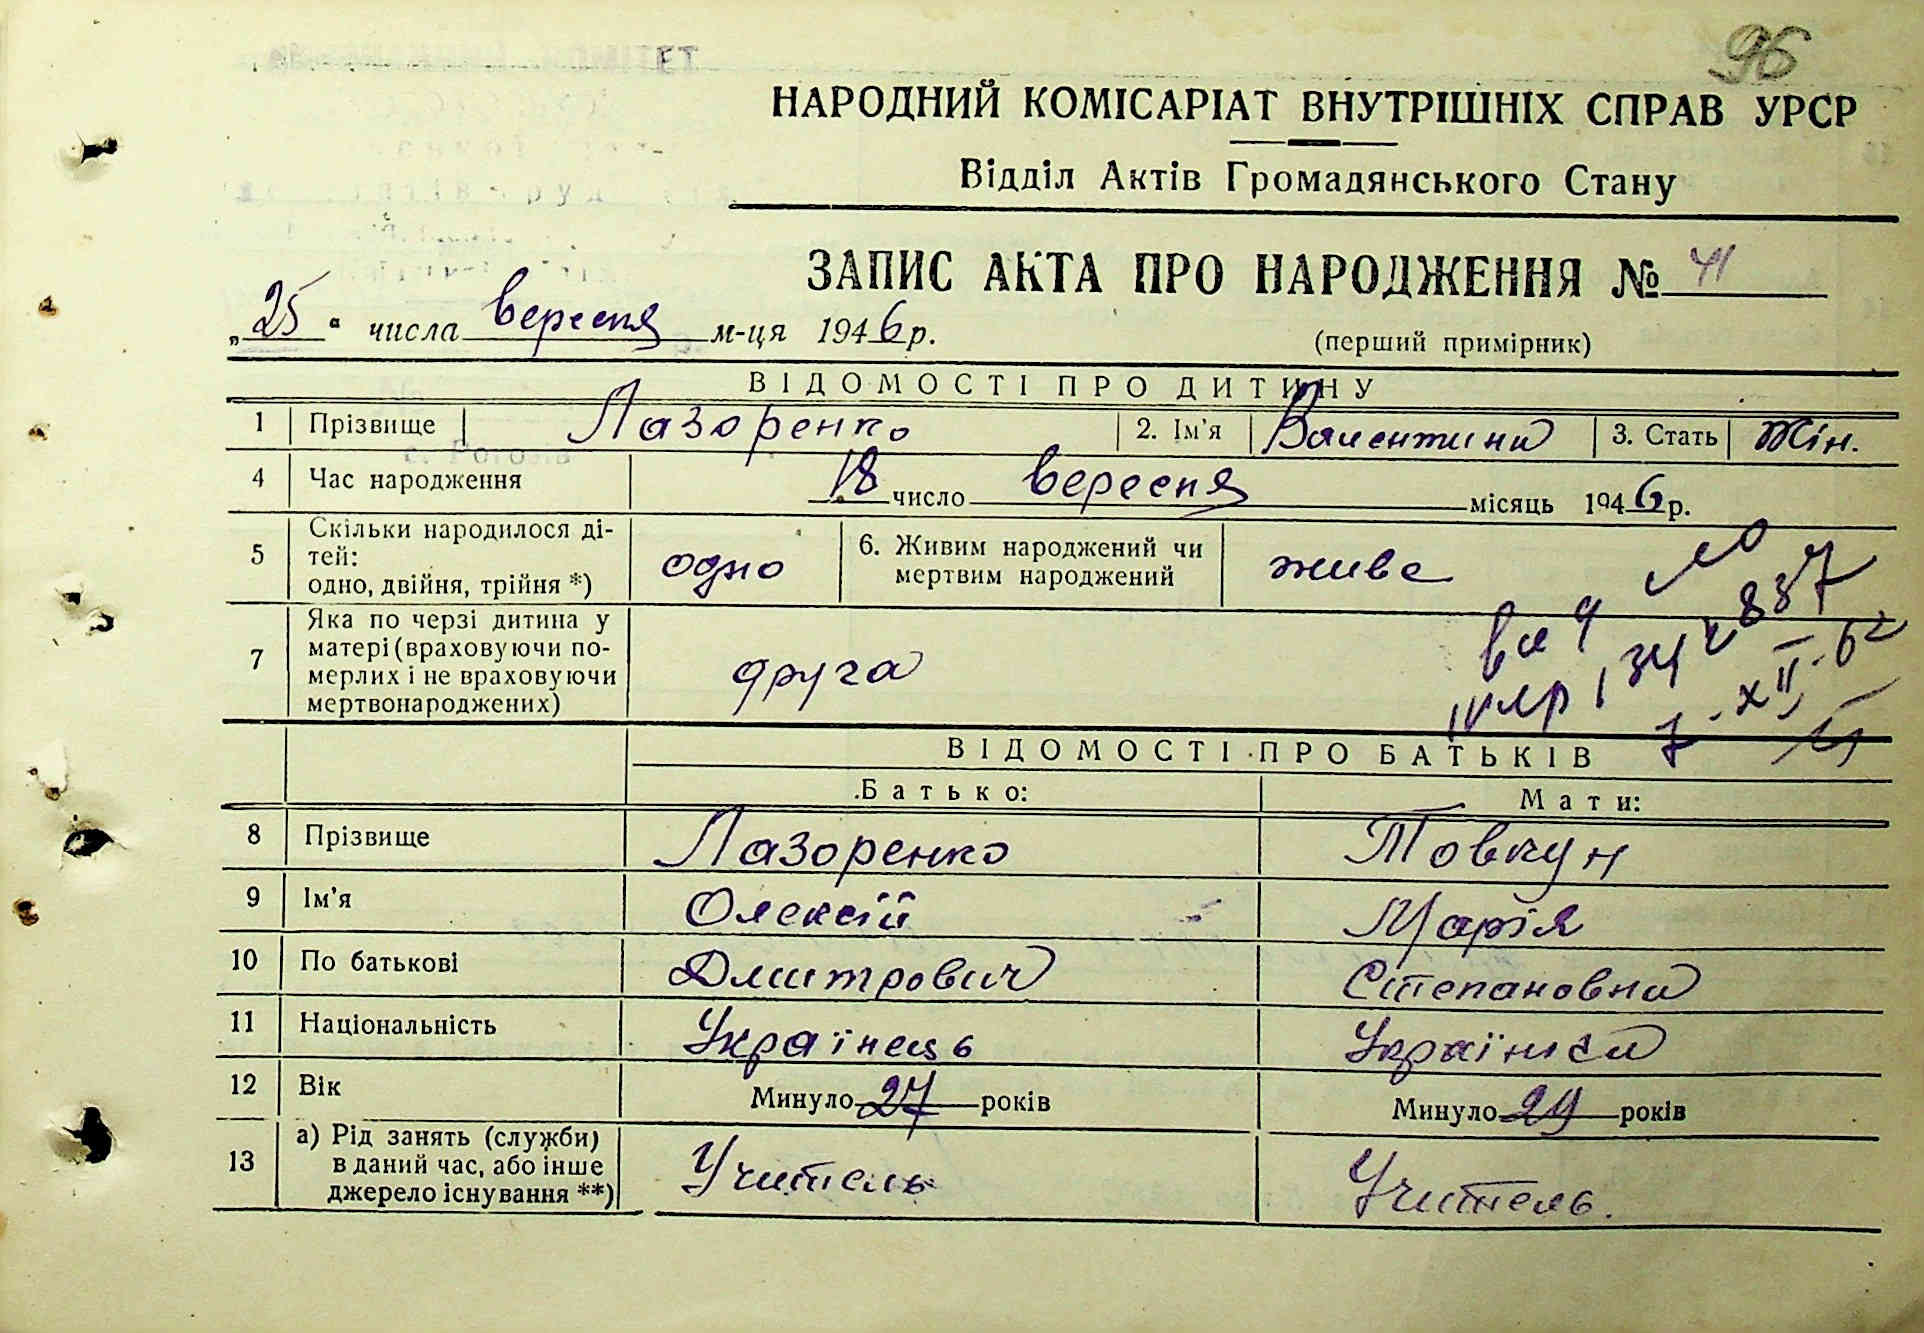 96
НАРОДНИЙ КОМІСАРІАТ ВНУТРІШНІХ СПРАВ УРСР
Відділ Актів Громадянського Стану
ЗАПИС АКТА ПРО НАРОДЖЕННЯ № 41
„25“ числа вересня м-ця 1946 р.
(перший примірник)
ВІДОМОСТІ ПРО ДИТИНУ
1 Прізвище Лазоренко 2. Ім'я Валентина 3. Стать Жін.
4 Час народження 18 число вересня місяць 1946 р.
5 Скільки народилося ді-
тей:
одно, двійня, трійня *) одно 6. Живим народжений чи
мертвим народжений живе
7 Яка по черзі дитина у
матері (враховуючи по-
мерлих і не враховуючи
мертвонароджених) друга
ВІДОМОСТІ ПРО БАТЬКІВ
Батько: Мати:
8 Прізвище Лазоренко Товкун
9 Ім'я Олексій Марія
10 По батькові Дмитрович Степановна
11 Національність Українець Українка
12 Вік Минуло 27 років Минуло 29 років
13 а) Рід занять (служби)
в даний час, або інше
джерело існування **) Учитель Учитель.